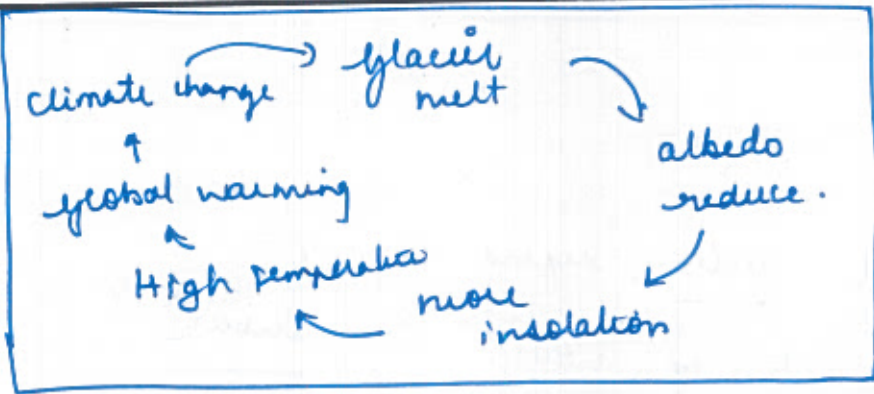 Climate change
Glacier
melt
albedo
reduce.
more
insolation
High temperature
global warming